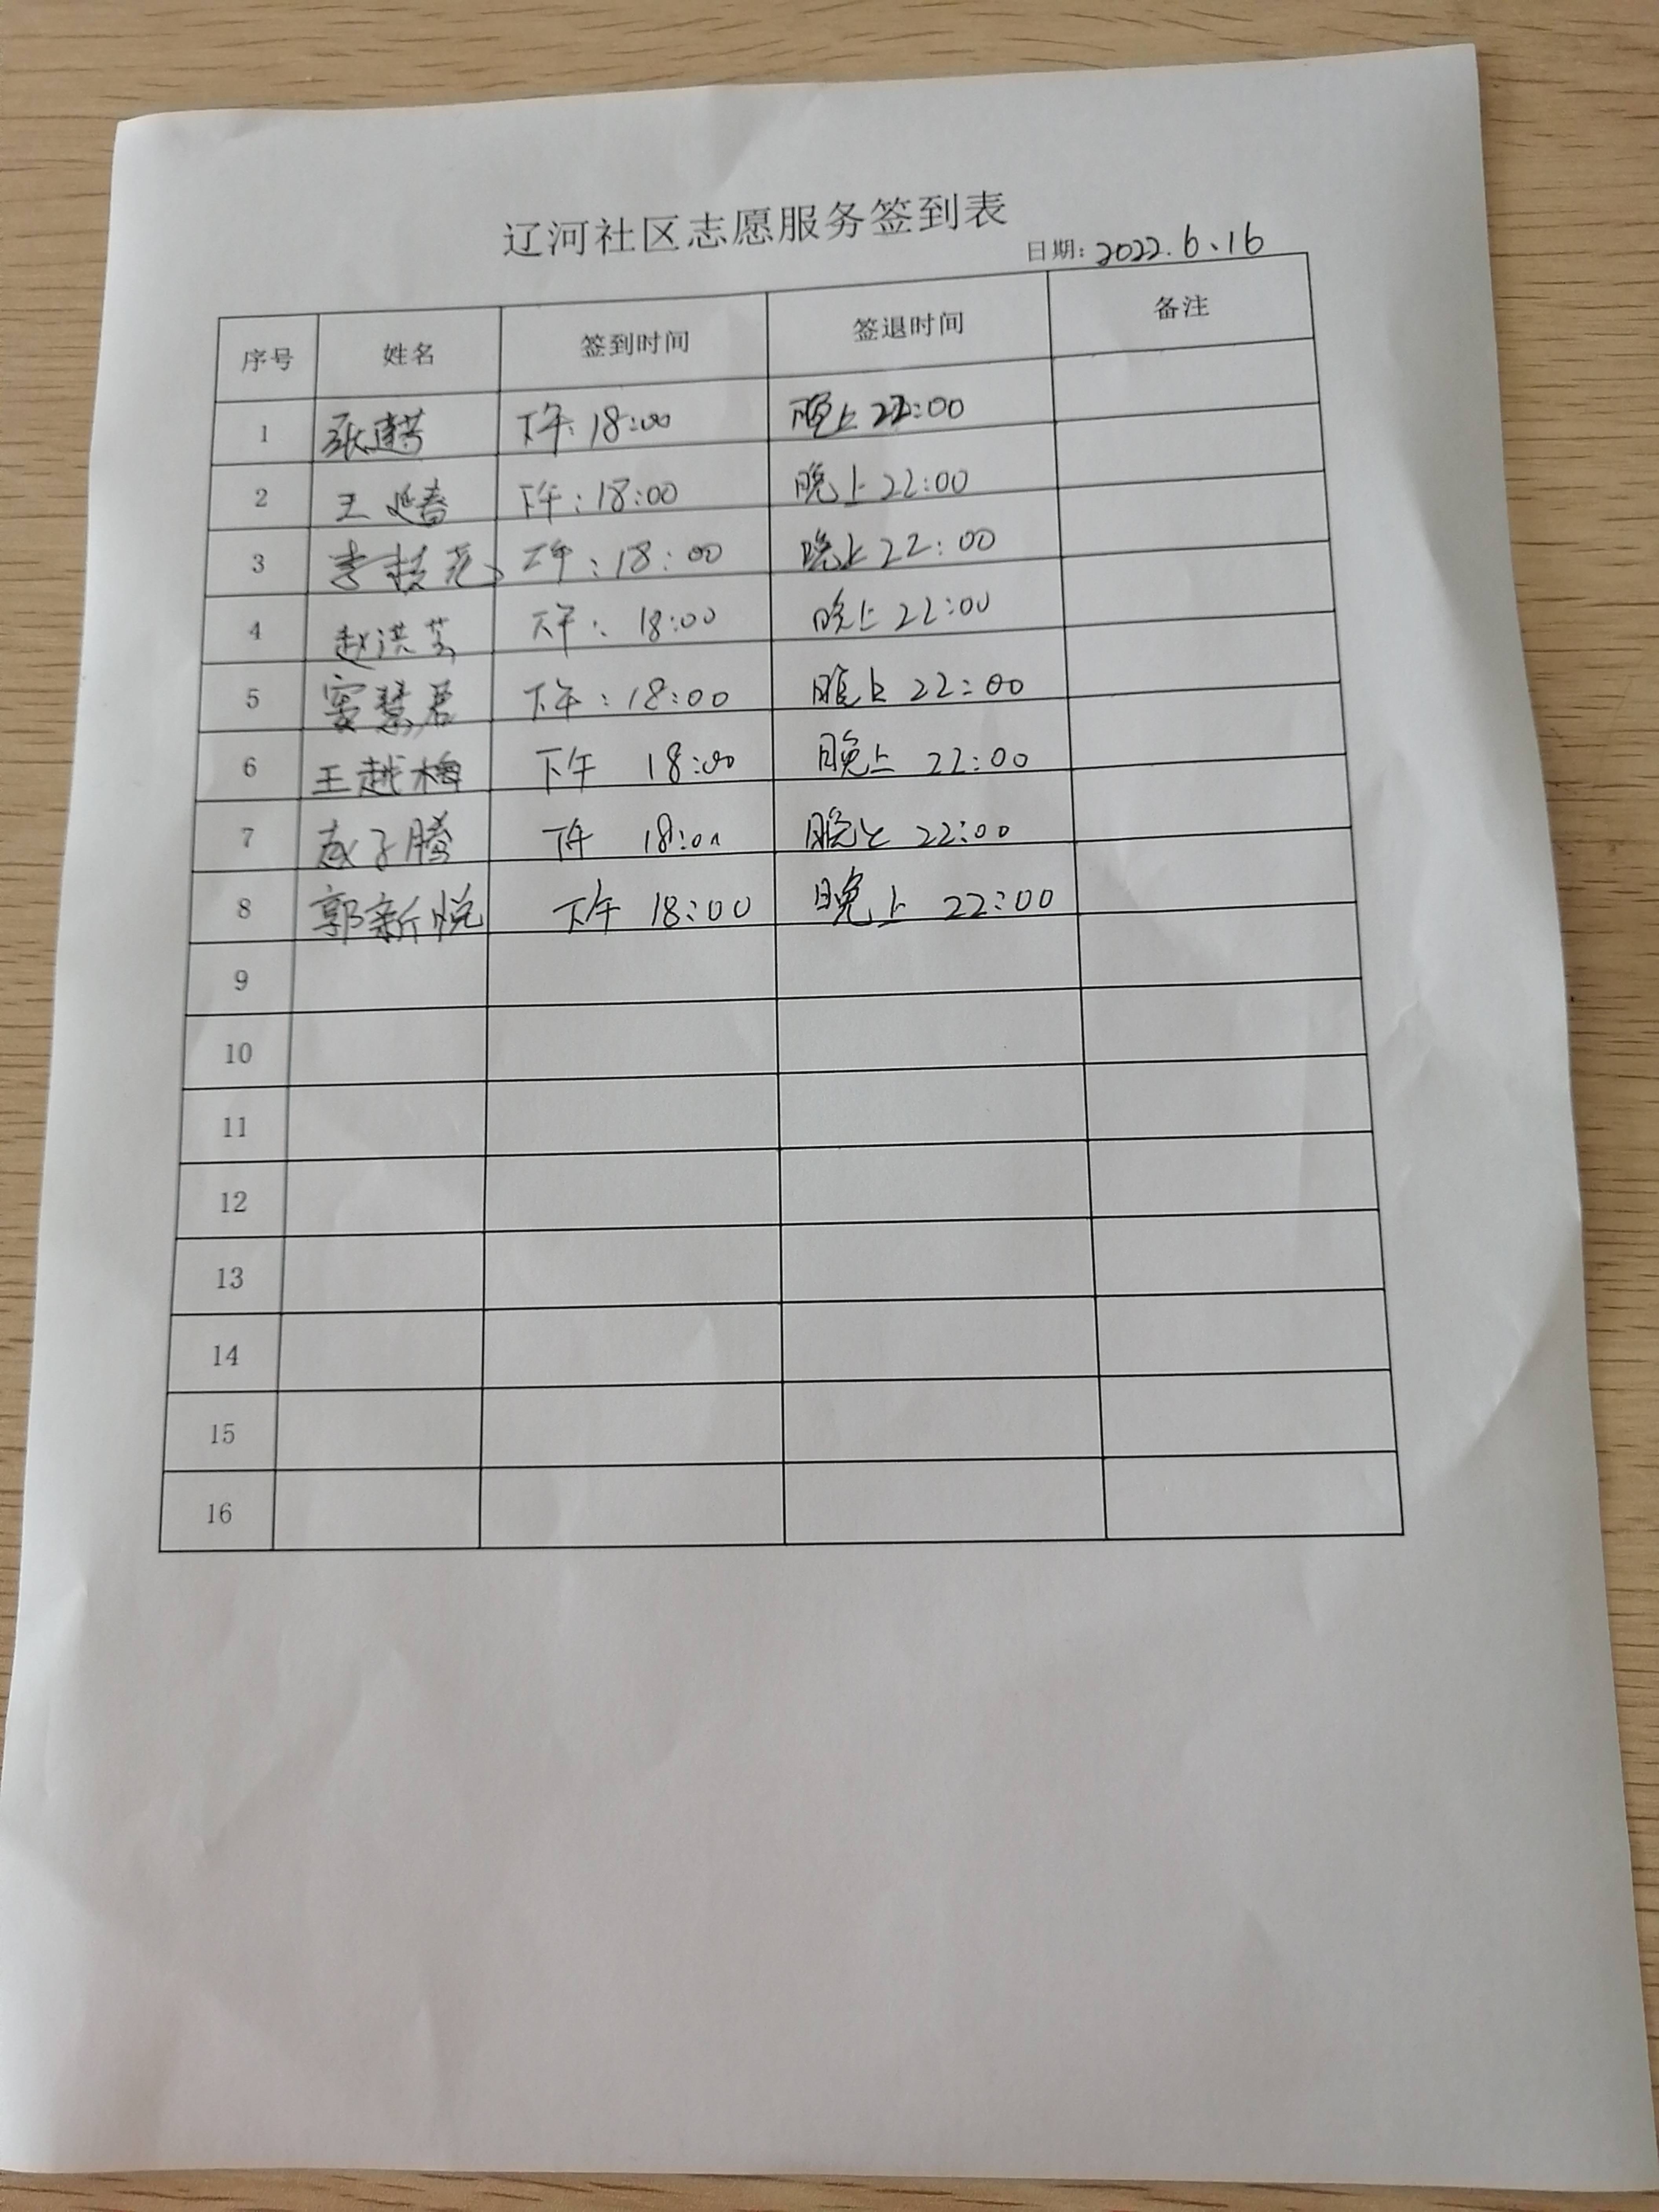 辽河社区志愿服务签到表
日期: 2022.6、16
序号 姓名 签到时间 签退时间 备注
1 下午: 18:00 晚上 22:00
2 王延春 下午: 18:00 晚上 22:00
3 李 下午: 18:00 晚上 22:00
4 赵洪芳 下午: 18:00 晚上 22:00
5 窦慧君 下午: 18:00 晚上 22:00
6 王越梅 下午 18:00 晚上 22:00
7 子腾 下午 18:00 晚上 22:00
8 郭新悦 下午 18:00 晚上 22:00
9
10
11
12
13
14
15
16